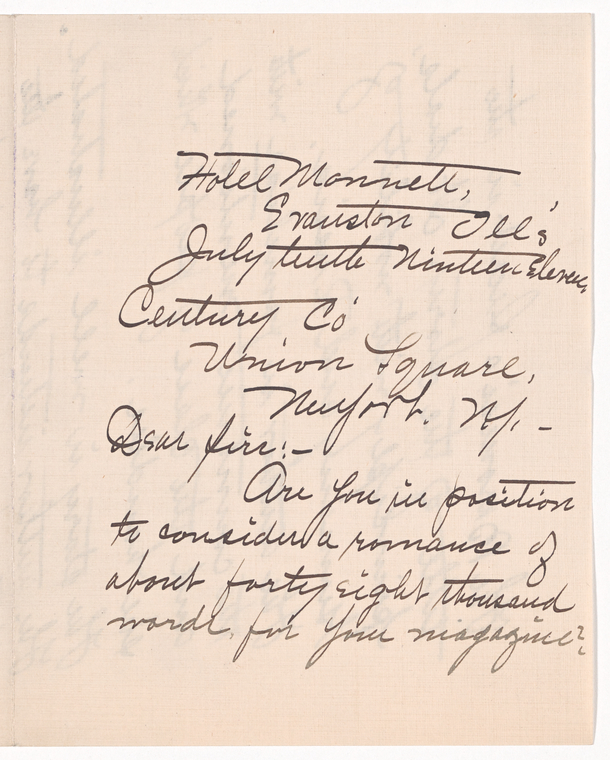 Hotel Monnett,
Evanston Ill's
July tenth Ninteen Eleven,
Century Co
Union Square,
New York. N.Y. -
Dear Sir:-
Are you in position
to consider a romance of
about forty eight thousand
words, for your magazine?